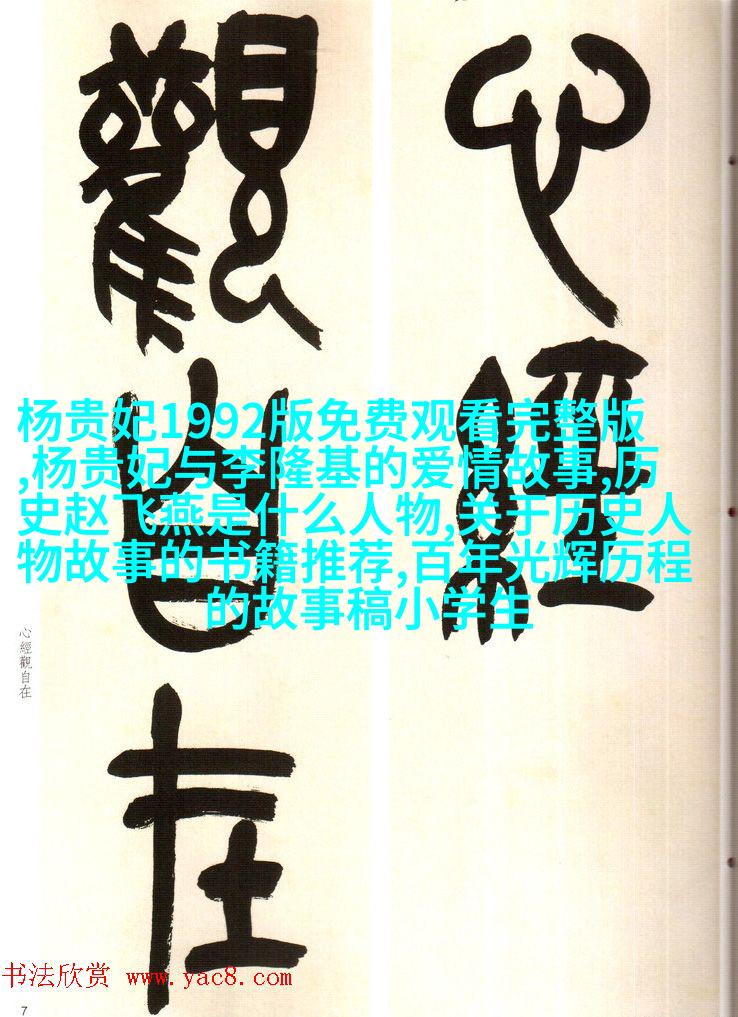 心經
觀自在
杨贵妃1992版免费观看完整版
,杨贵妃与李隆基的爱情故事,历
史赵飞燕是什么人物,关于历史人
物故事的书籍推荐,百年光辉历程
的故事稿小学生
心經觀自在
书法欣赏 www.yac8.com
7